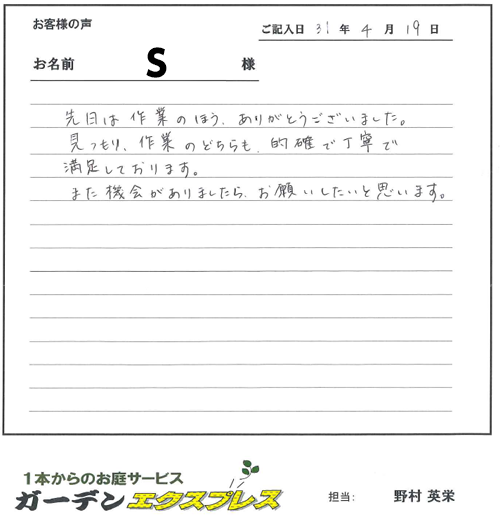 お客様の声
ご記入日 31 年 4 月 19 日
お名前 S 様
先日は作業のほう、ありがとうございました。
見つもり、作業のどちらも、的確で丁寧で
満足しております。
また機会がありましたら、お願いしたいと思います。
1本からのお庭サービス
ガーデンエクスプレス
担当: 野村 英栄